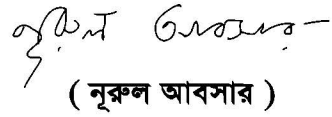 নূরুল আবসার
( নূরুল আবসার )